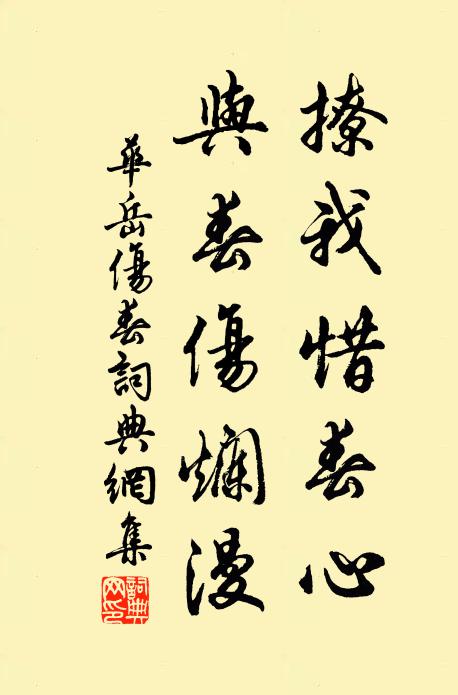 撩我惜春心
與春傷爛漫
華岳傷春詞典網集
詞典
网印